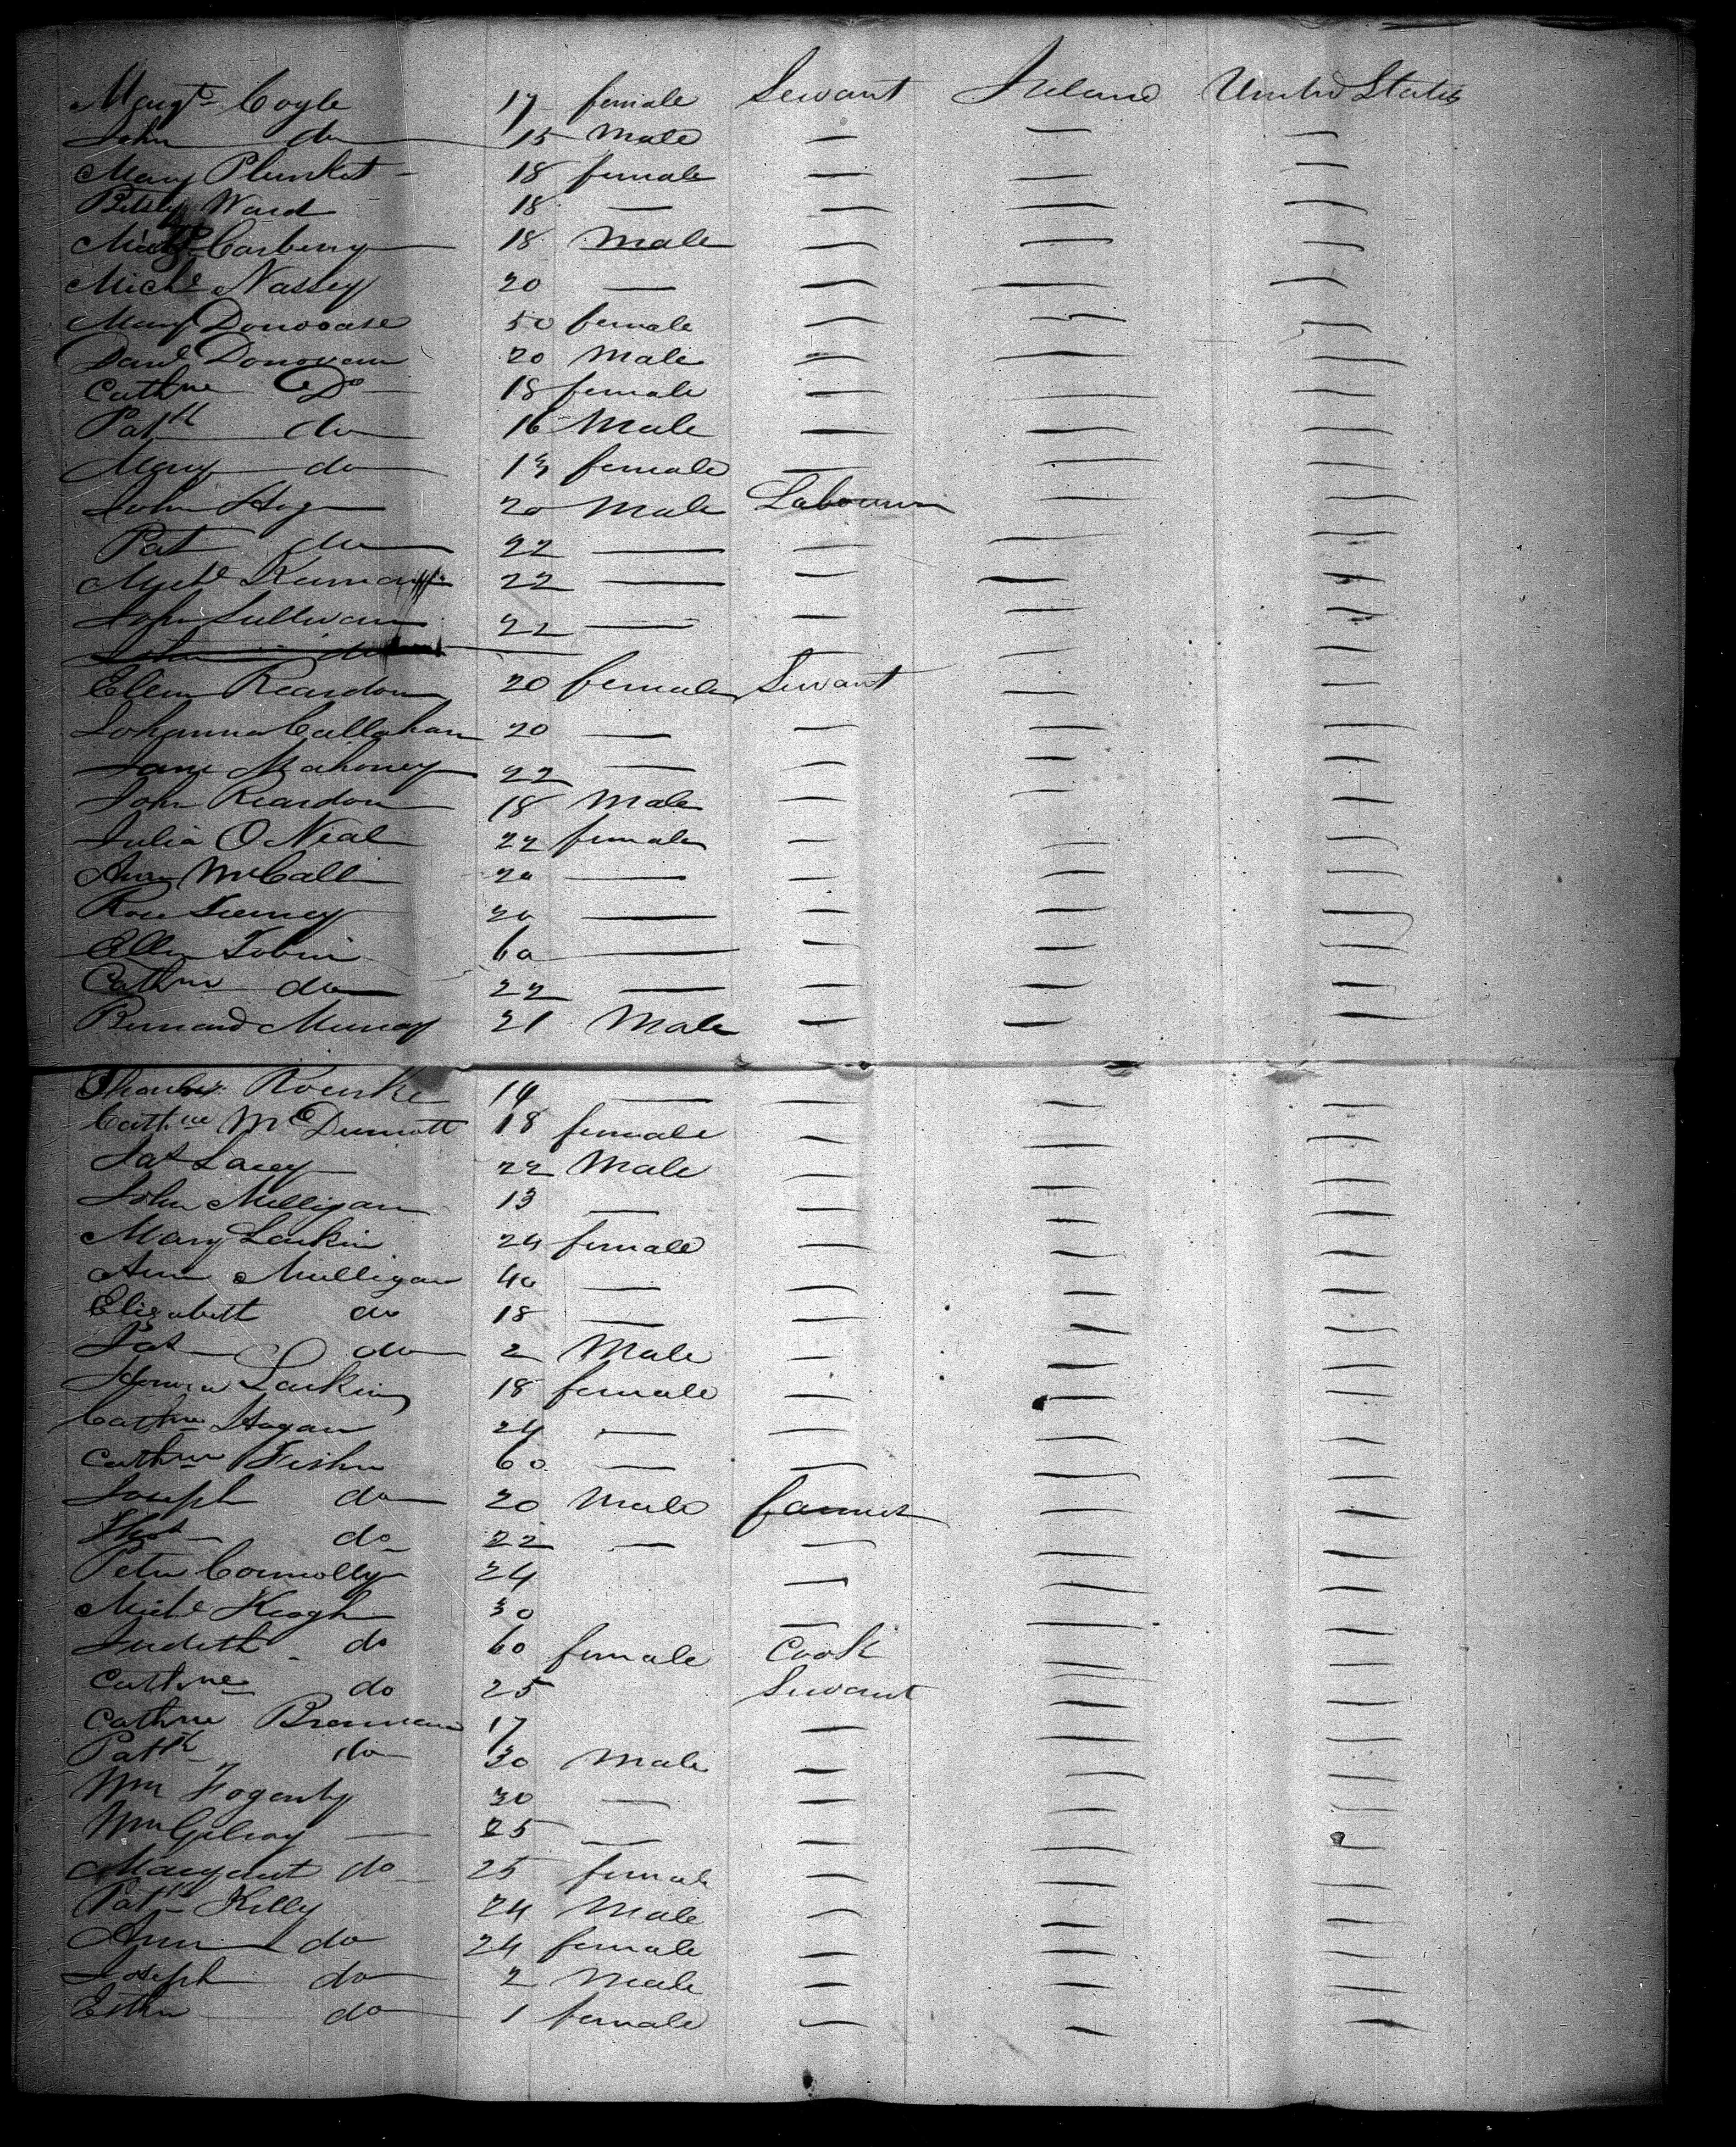 Margt Coyle 17 female Servant Ireland United States
John do 15 Male — — —
Mary Plunket 18 female — — —
Betsy Ward 18 — — — —
Carberry 18 Male — — —
Michl Nassey 20 — — — —
Mary Donovan 50 female — — —
Danl Donovan 20 Male — — —
Cathne Do 18 female — — —
Patk do 16 Male — — —
Mary do 13 female — — —
John Hogan 20 Male Labourer — —
Pat do 22 — — — —
Michl 22 — — — —
John Sullivan 22 — — — —
John do — — —
Ellen Reardon 20 female Servant — —
Johanna Callahan 20 — — — —
Jane Mahoney 22 — — — —
John Reardon 18 Male — — —
Julia O Neal 22 female — — —
Ann McCall 20 — — — —
Rose 20 — — — —
Ellen Tobin 60 — — — —
Cathne do 22 — — — —
Bernard Murray 21 Male — — —
Charles Rourke 14 — — — —
Cathne McDermott 18 female — — —
Pat Lacey 22 Male — — —
John Milligan 13 — — — —
Mary Larkin 24 female — — —
Ann Mulligan 40 — — — —
Elizabeth do 18 — — — —
Pat do 2 Male — — —
Larkin 18 female — — —
Cathne Hogan 24 — — — —
Cathne Fisher 60 — — — —
Joseph do 20 Male farmer — —
Thos do 22 — — — —
Peter Connolly 24 — — —
Michl Keogh 30 — — —
Judith do 60 female Cook — —
Cathne do 25 Servant — —
Cathne Brennan 17 — — —
Patk do 30 Male — — —
Wm Fogerty 30 — — — —
Wm Gilroy — 25 — — — —
Margaret do 25 female — — —
Patk Kelly 24 Male — — —
Ann do 24 female — — —
Joseph do 2 Male — — —
Esther do 1 female — — —